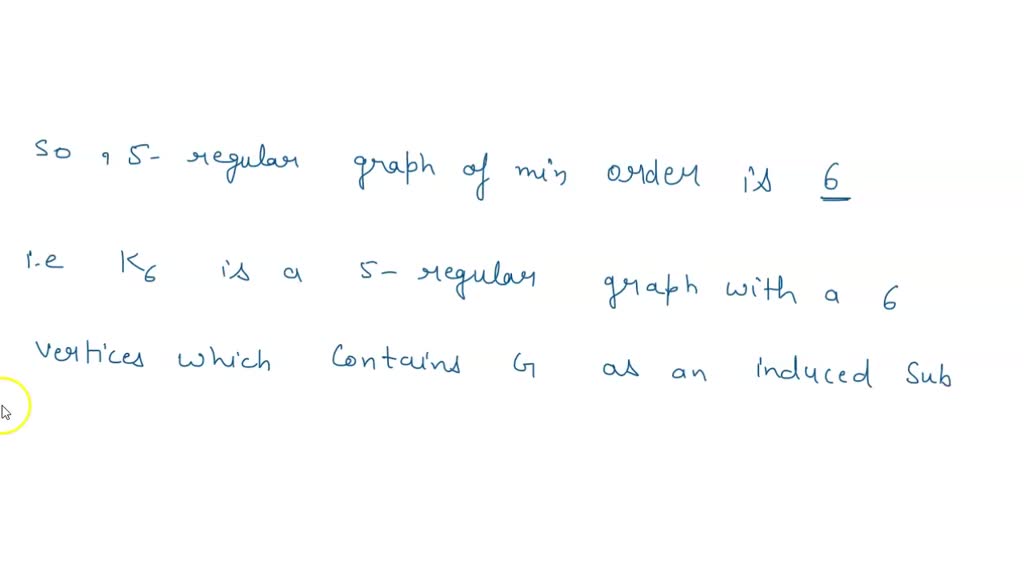 So , 5- regular graph of min order is 6
i.e K6 is a 5- regular graph with a 6
vertices which Contains G as an induced Sub